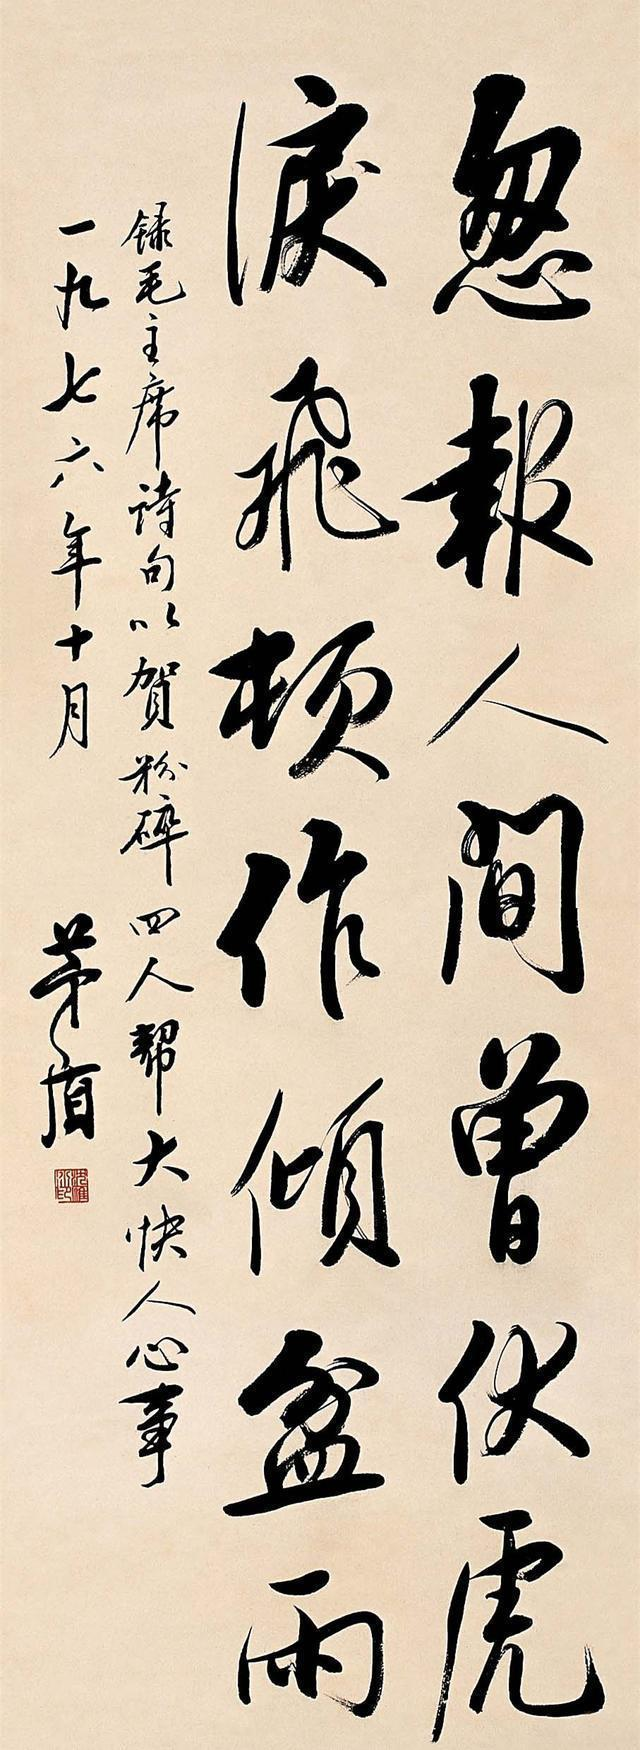 忽報人間曾伏虎
淚飛頓作傾盆雨
録毛主席詩句以賀粉碎四人幫大快人心事
一九七六年十月
茅盾